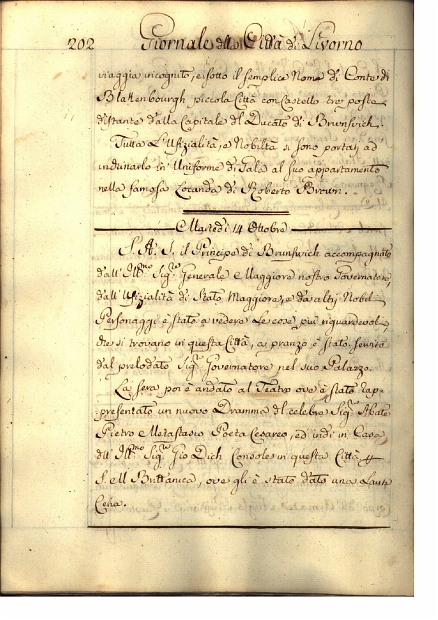 202 Giornale della Città di Livorno
viaggia incognito, e sotto il semplice Nome di Conte di
Blakenbourgh piccola Città con Castello tre poste
distante dalla Capitale del Ducato di Brunswich.
Tutta L'Ufizialità, e Nobiltà si sono portati ad
indunarlo in Uniforme di Gala al suo appartamento
nella famosa Locanda di Roberto Brown.
Martedì 14 Ottobre
S. A. S. il Principe di Brunswich accompagnato
dall' Ill.mo Sig.re Generale e Maggiore nostro Governatore,
dall' Ufizialità di Stato Maggiore, e da altri Nobil
Personaggi è stato a vedere Le cose più riguardevoli,
che si trovano in questa Città, a pranzo è stato servito
dal prelodato Sig.re Governatore nel suo Palazzo.
La sera poi è andato al Teatro ove è stato rap-
presentato un nuovo Dramma del celebre Sig.re Abate
Pietro Metastasio Poeta Cesareo, ed indi in Casa
dell' Ill.mo Sig.re Gio Dich Console in questa Città
S. M Brittanica, ove gli è stato dato una Lauta
Cena.